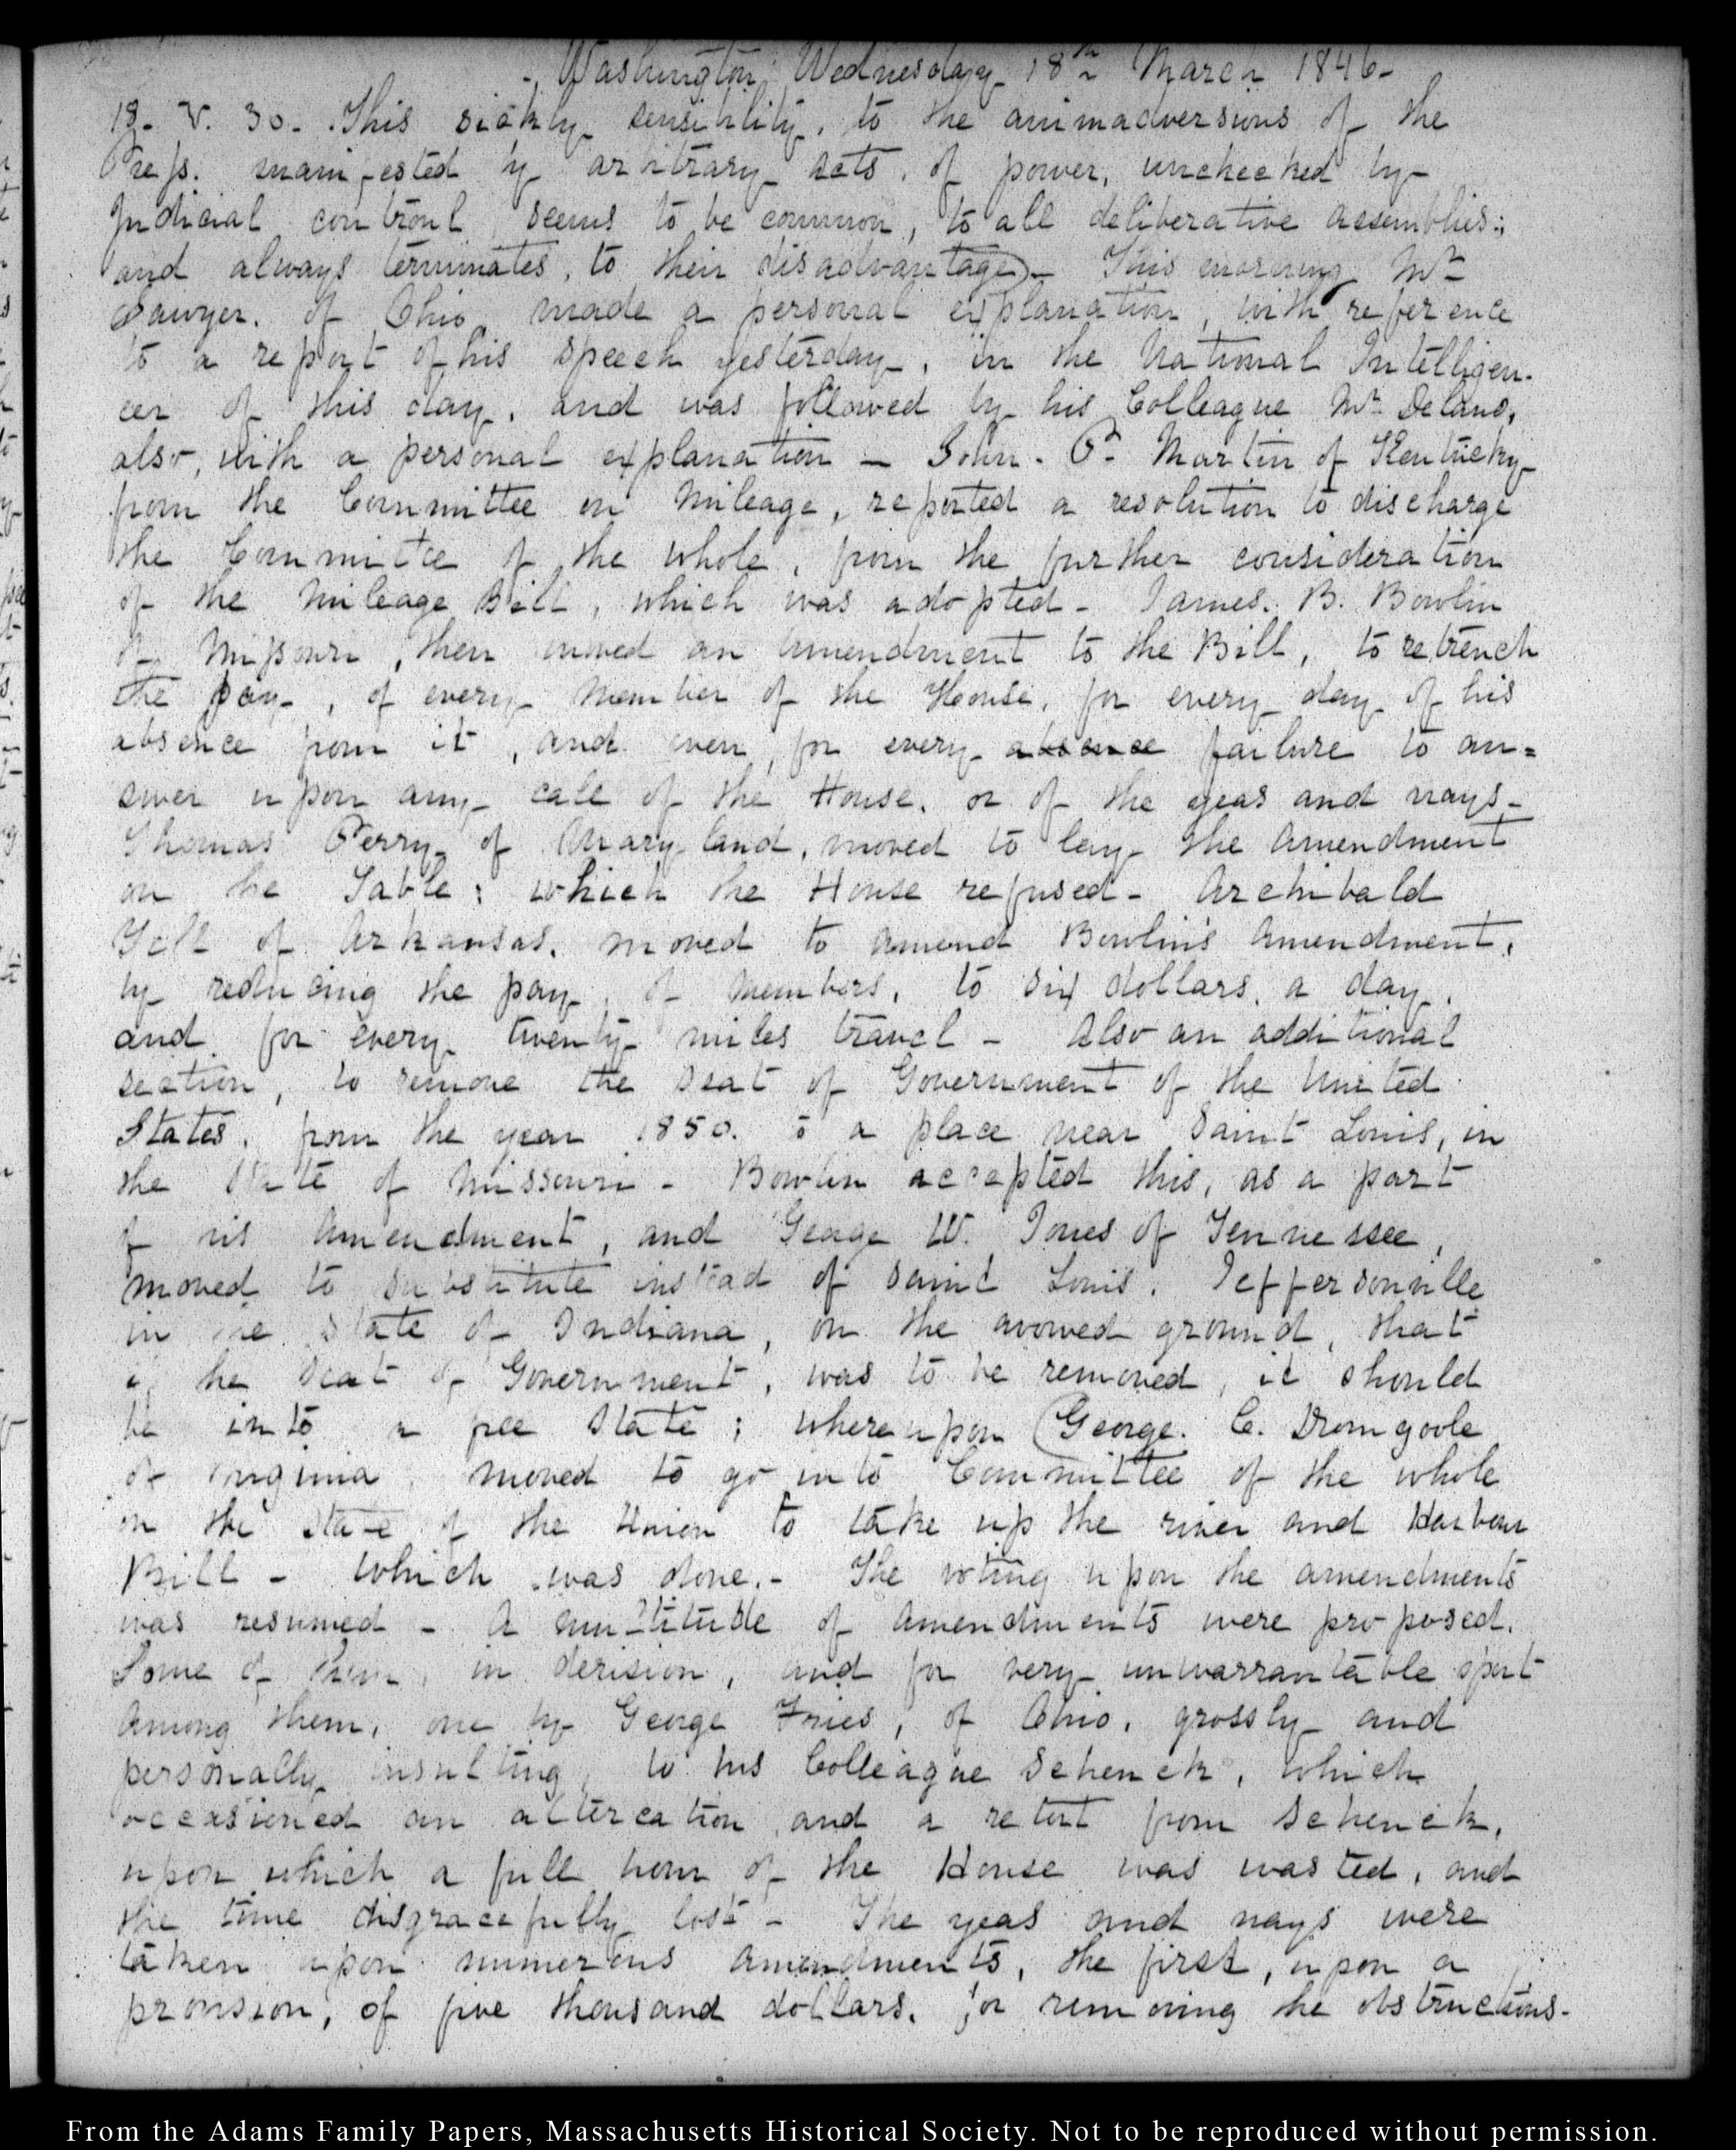 Washington, Wednesday 18th March 1846-
18. V. 30. This sickly sensibility, to the animadversions of the
Press. manifested by arbitrary acts, of power, unchecked by
Judicial controul, seems to be common, to all deliberative assemblies;
and always terminates, to their disadvantage- This morning Mr
Sawyer. of Ohio, made a personal explanation, with reference
to a report of his speech yesterday, in the National Intelligen-
cer of this day, and was followed by his Colleague Mr Delano,
also, with a personal explanation - John. P. Martin of Kentucky
from the Committee on Mileage, reported a resolution to discharge
the Committee of the whole, from the further consideration
of the Mileage Bill, which was adopted- James. B. Bowlin
of Missouri, then moved an amendment to the Bill, to retrench
the pay, of every Member of the House, for every day of his
absence from it, and even, for every absence failure to an=
swer upon any call of the House, or of the yeas and nays-
Thomas Perry of Maryland, moved to lay the Amendment
on the Table: which the House refused- Archibald
Yell of Arkansas, moved to amend Bowlin's Amendment,
by reducing the pay, of Members, to six dollars, a day,
and for every twenty miles travel - Also an additional
section, to remove the Seat of Government of the United
States, from the year 1850. to a place near Saint Louis, in
the State of Missouri - Bowlin accepted this, as a part
of his Amendment, and George W. Jones of Tennessee,
moved to substitute instead of Saint Louis, Jeffersonville
in the State of Indiana, on the avowed ground, that
if the Seat of Government, was to be removed, it should
be into a free State; whereupon George. C. Dromgoole
of Virginia, moved to go into Committee of the whole
on the State of the Union to take up the river and Harbour
Bill - which was done.- The voting upon the amendments
was resumed - A multitude of Amendments were proposed.
Some of them, in derision, and for very unwarrantable sport
Among them, one by George Fries, of Ohio, grossly and
personally insulting, to his Colleague Schenck, which
occasioned an altercation and a retort from Schenck,
upon which a full hour of the House was wasted, and
the time disgracefully lost - The yeas and nays were
taken upon numerous Amendments, the first, upon a
provision, of five thousand dollars, for removing the obstructions-
From the Adams Family Papers, Massachusetts Historical Society. Not to be reproduced without permission.